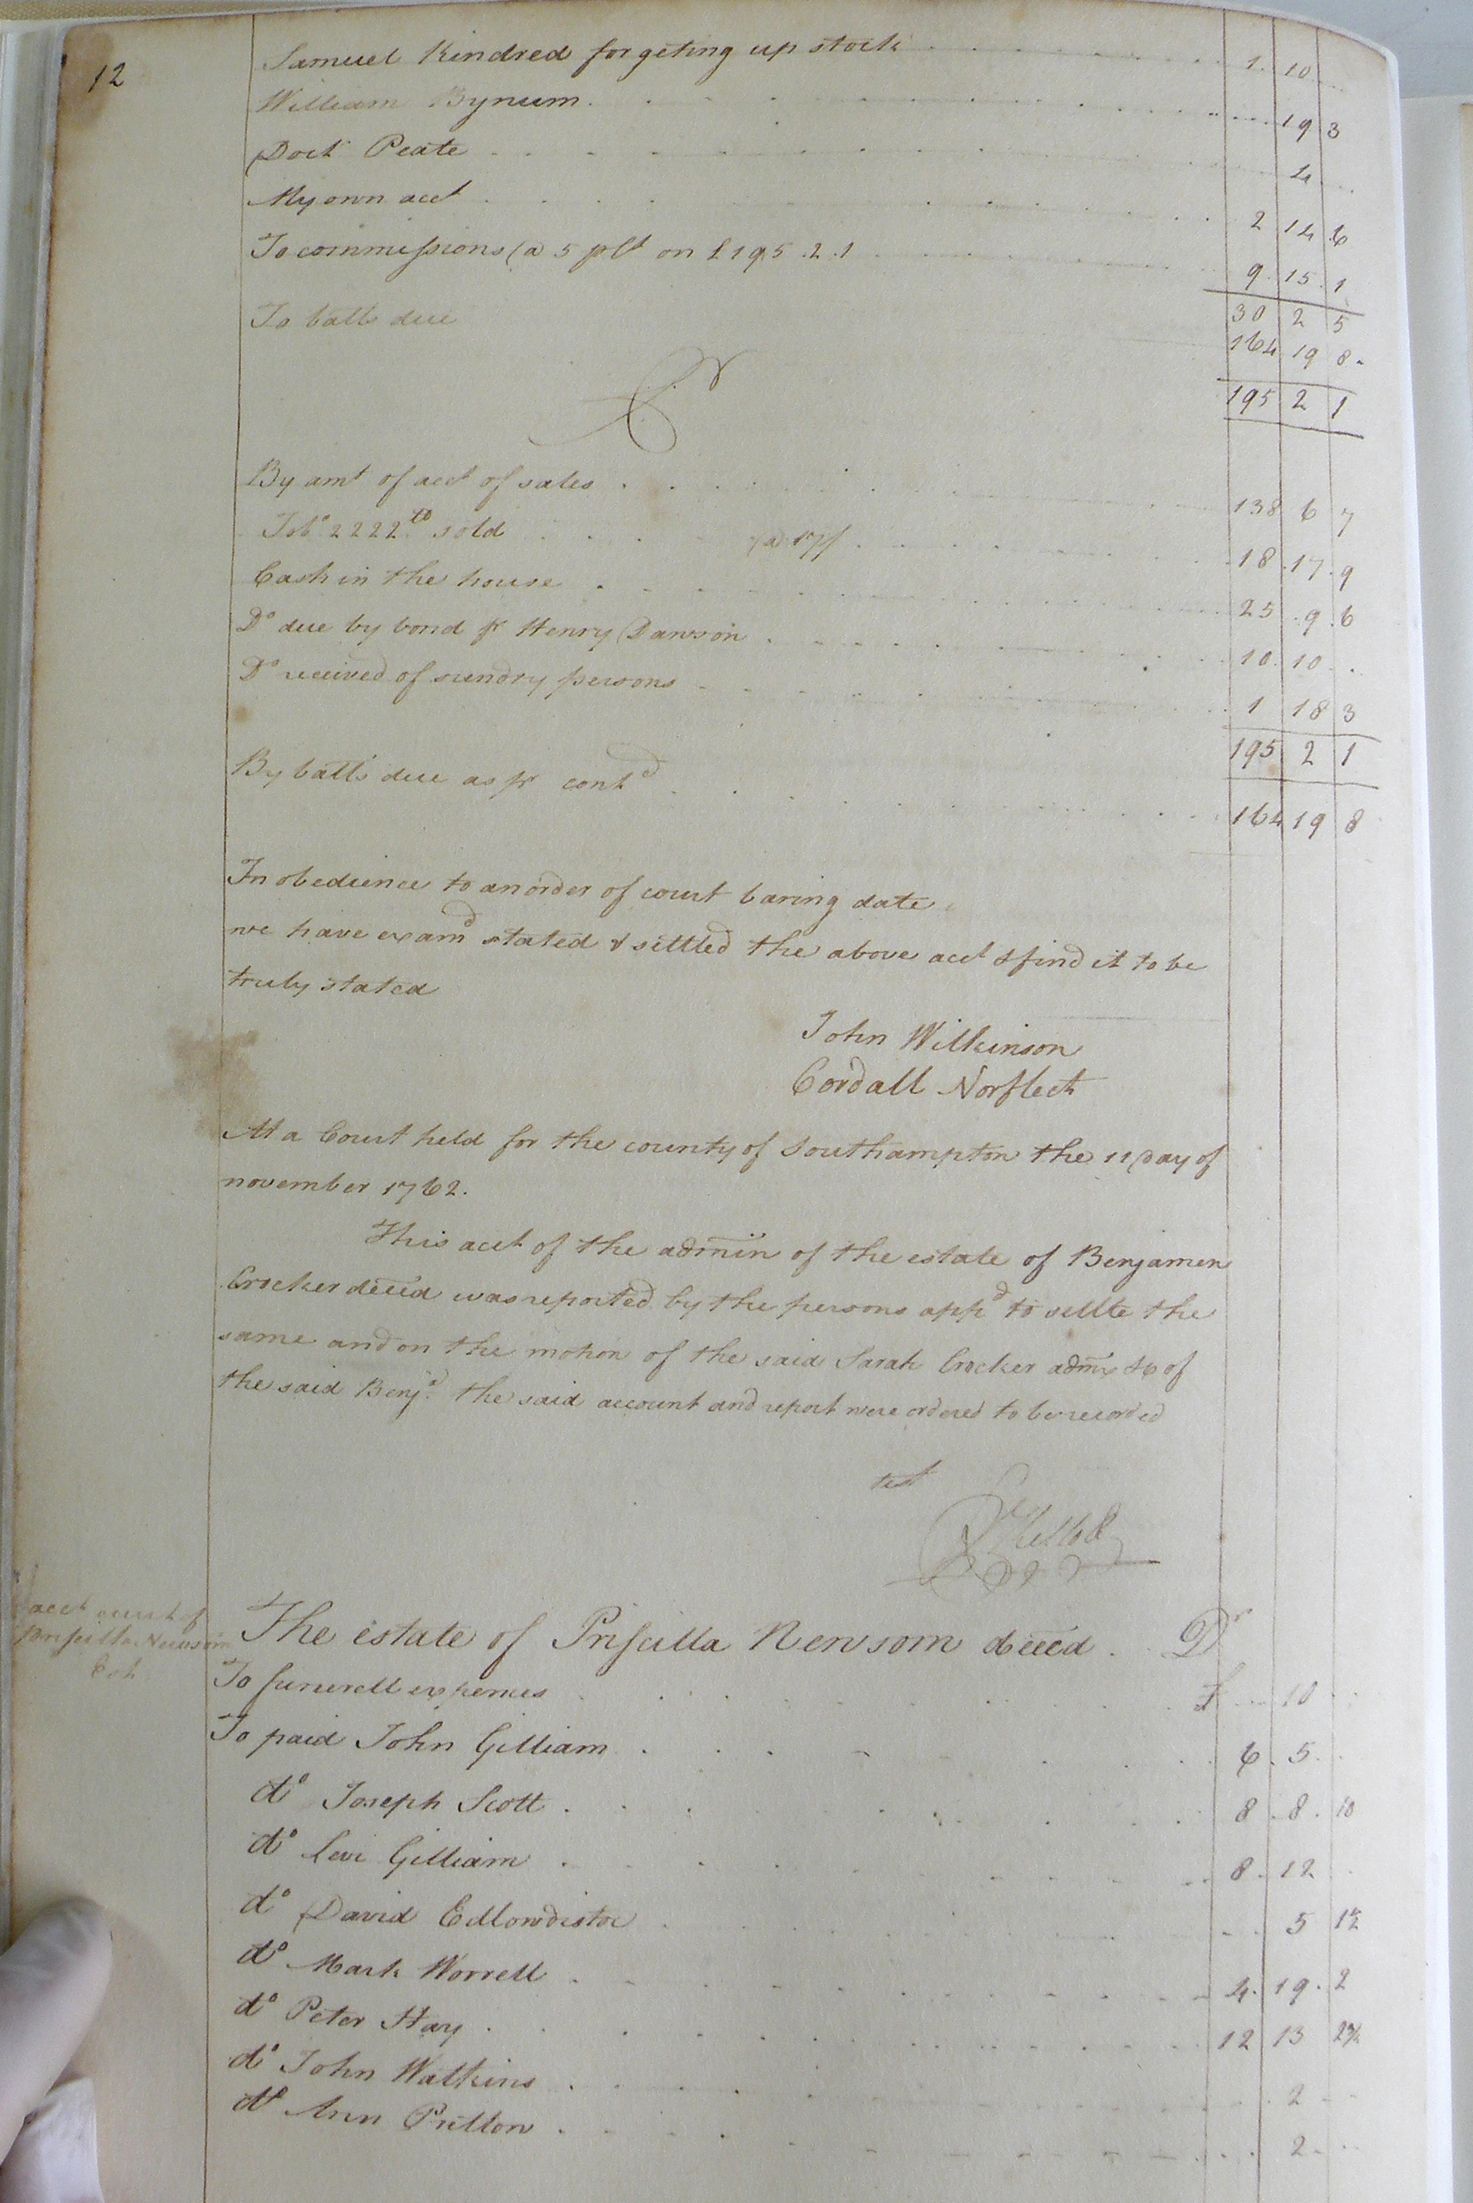 12
Samuel Kindred for geting up stock 1 10
William Bynum 19 3
Doct Peate 4
My own acct 2 14 6
To commissions @ 5 pCt on £195.2.1 9 15 1
30 2 5
To balle due 164 19 8
195 2 1
Cr
By amt of acct of sales 138 6 7
Tobo 2222 lb sold @ 17/ 18 17 9
Cash in the house 25 9 6
Do due by bond pr Henry Dawson 10 10
Do received of sundry persons 1 18 3
195 2 1
By balle due as pr contd 164 19 8
In obedience to an order of court baring date
we have examd stated & settled the above acct & find it to be
truly stated
John Wilkinson
Cordall Norfleet
At a Court held for the county of Southampton the 11 Day of
november 1762.
This acct of the admin of the estate of Benjamen
Crocker deced was reported by the persons appd to settle the
same and on the motion of the said Sarah Crocker admx &c of
the said Benja. the said account and report were ordered to be recorded
test
acct curt of
Priscilla Newsom
Est
The estate of Priscilla Newsom deced Dr
To funerell expences £ 10
To paid John Gilliam 6 5
do Joseph Scott 8 8 10
do Levi Gilliam 8 12
do David Edlowdistoe 5 1½
do Mark Worrell 4 19 2
do Peter Hay 12 13 2¾
do John Watkins 2
do Ann Pritton 2